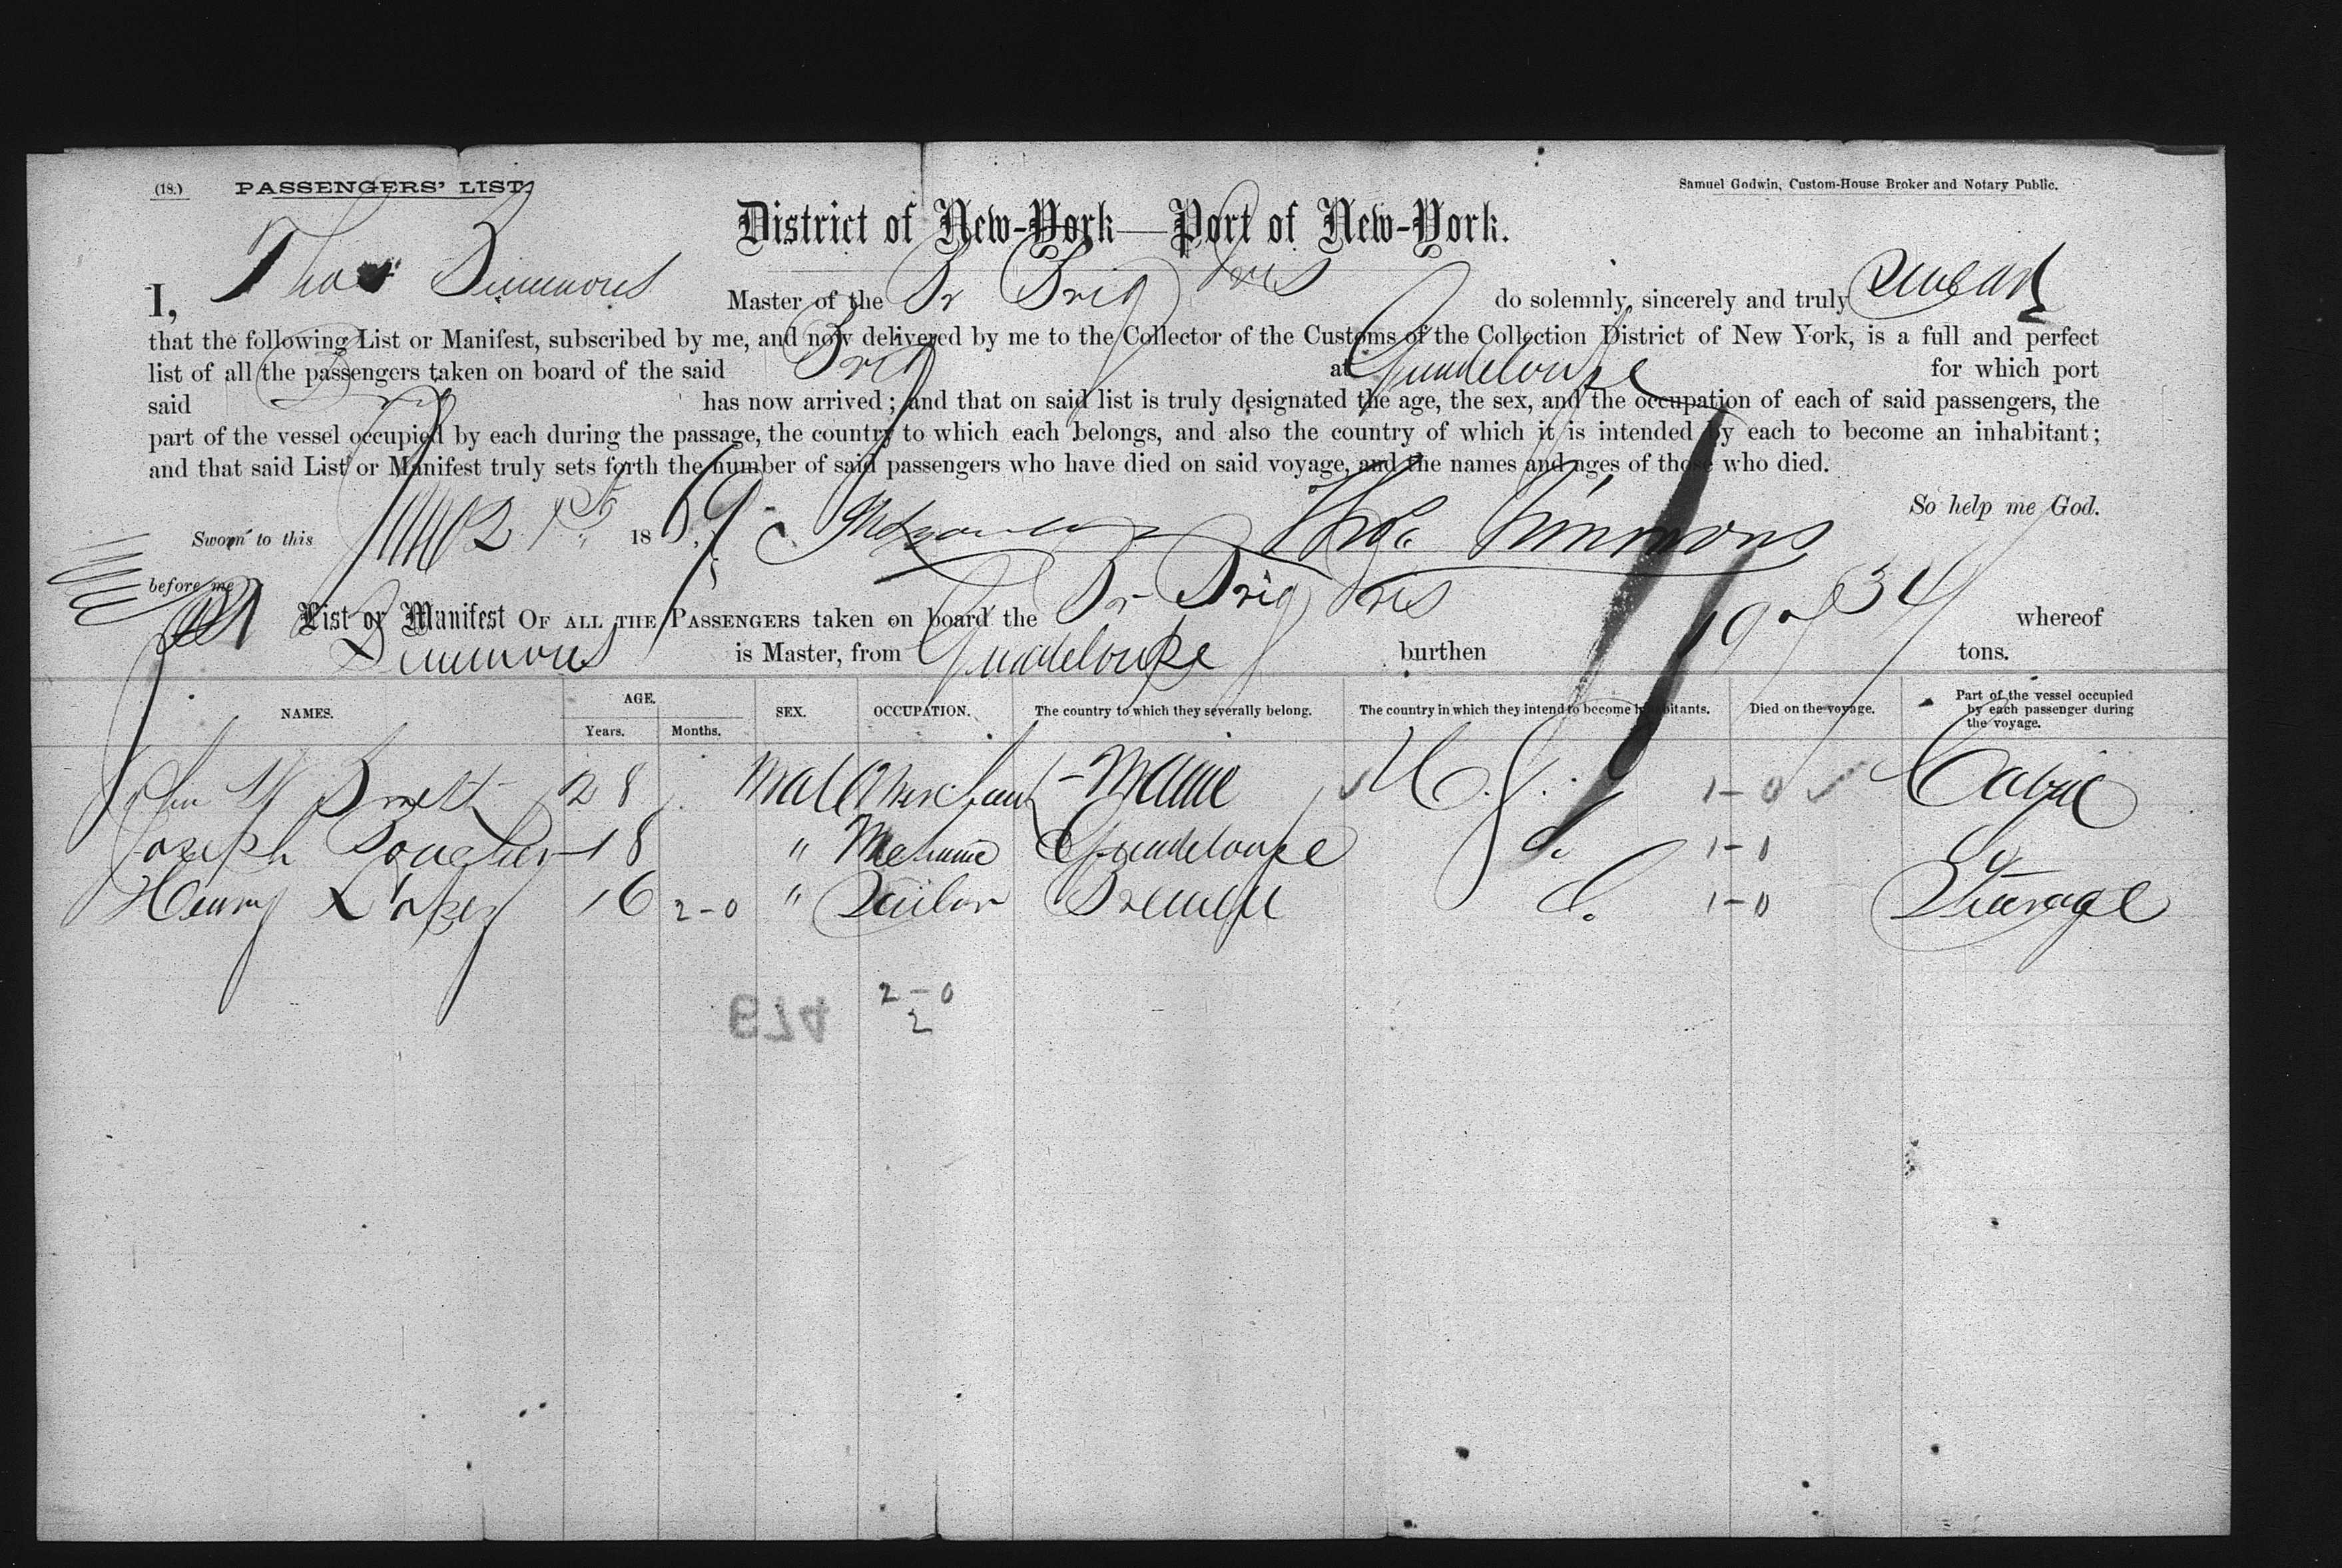 (18.) PASSENGERS' LIST.
Samuel Godwin, Custom-House Broker and Notary Public.
District of New-York—Port of New-York.
I, Thos Simmons Master of the Br Brig Iris do solemnly, sincerely and truly swear
that the following List or Manifest, subscribed by me, and now delivered by me to the Collector of the Customs of the Collection District of New York, is a full and perfect
list of all the passengers taken on board of the said Brig at Guadeloupe for which port
said Brig has now arrived; and that on said list is truly designated the age, the sex, and the occupation of each of said passengers, the
part of the vessel occupied by each during the passage, the country to which each belongs, and also the country of which it is intended by each to become an inhabitant;
and that said List or Manifest truly sets forth the number of said passengers who have died on said voyage, and the names and ages of those who died.
So help me God.
Sworn to this 21st 1869 Thos Simmons
before me
List or Manifest OF ALL THE PASSENGERS taken on board the Br Brig Iris whereof
Simmons is Master, from Guadeloupe burthen 197 34 tons.
NAMES. AGE. Years. Months. SEX. OCCUPATION. The country to which they severally belong. The country in which they intend to become inhabitants. Died on the voyage. Part of the vessel occupied by each passenger during the voyage.
John 28 Male Merchant Maine U.S. 1-0 Cabin
Joseph 18 " Guadeloupe d. 1-1
Henry 16 2-0 " Sailor d. 1-0 Steerage
2-0
674